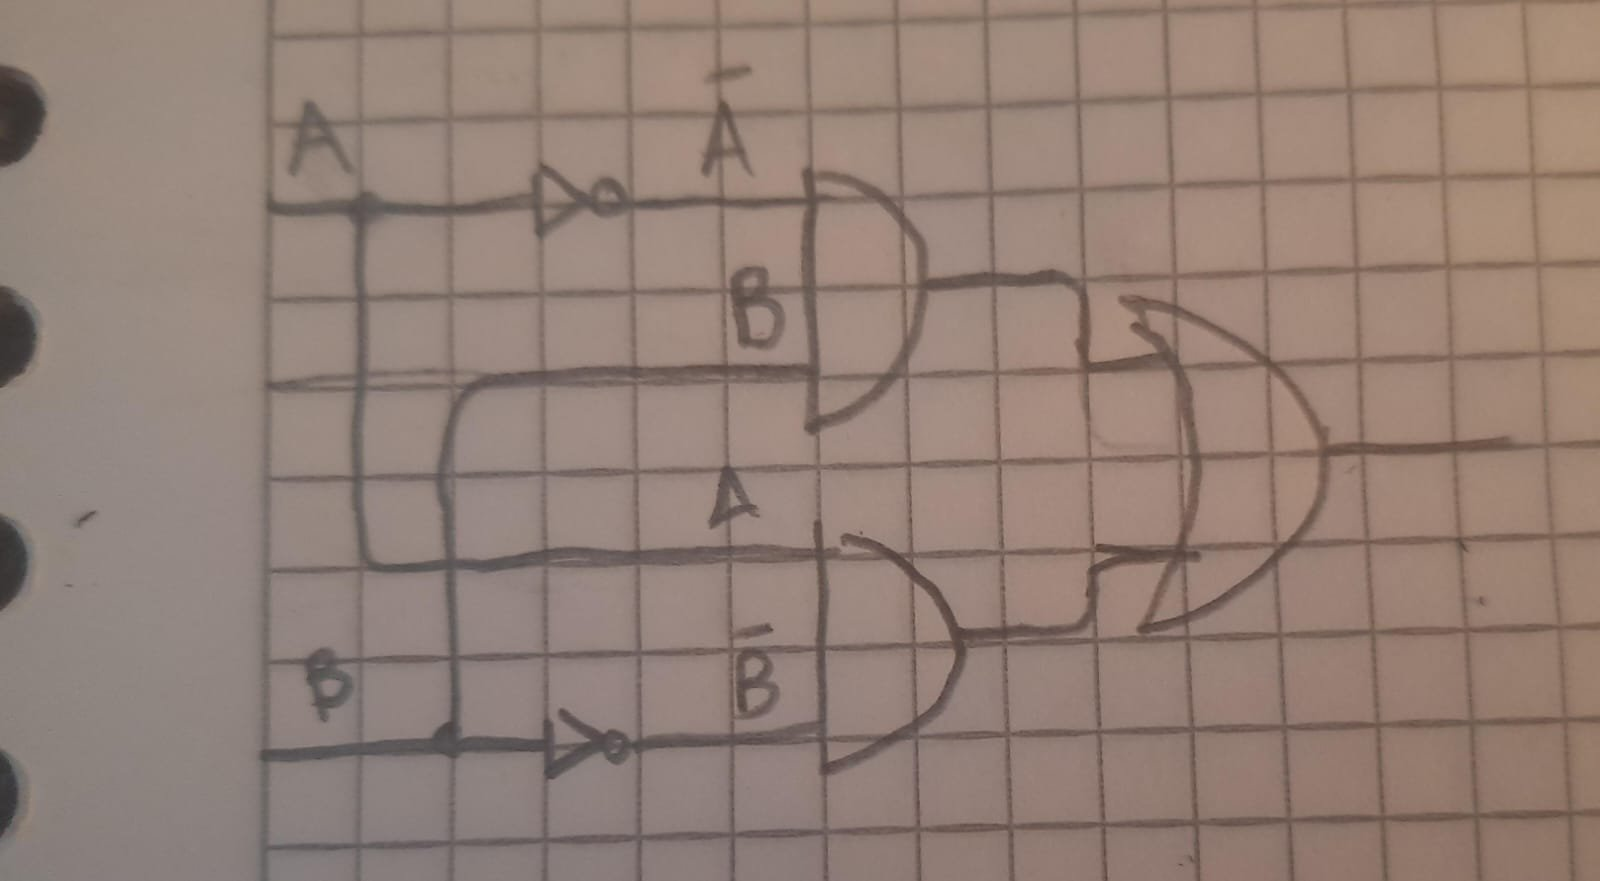 A
Ā
B
A
B
B̄